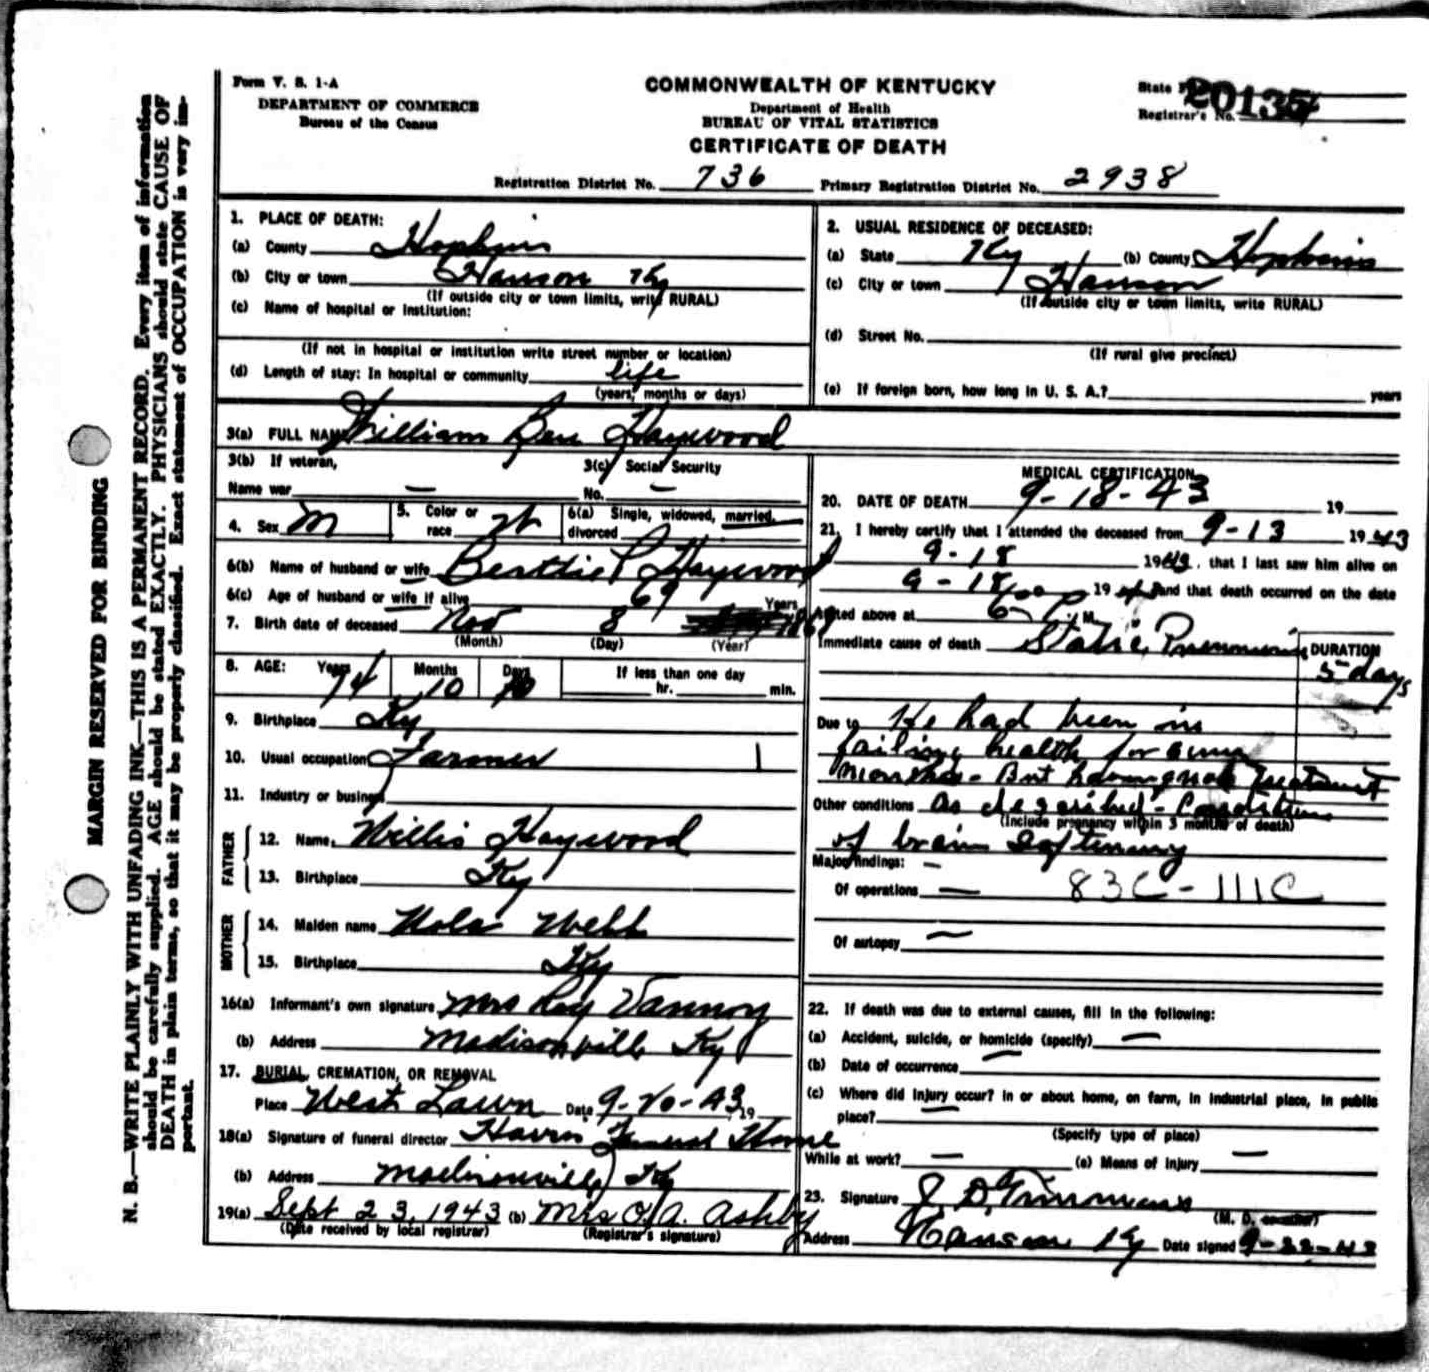 Form V. S. 1-A
DEPARTMENT OF COMMERCE
Bureau of the Census
COMMONWEALTH OF KENTUCKY
Department of Health
BUREAU OF VITAL STATISTICS
CERTIFICATE OF DEATH
State
Registrar's No.
20135
Registration District No. 736 Primary Registration District No. 2938
1. PLACE OF DEATH:
(a) County Hopkins
(b) City or town Hanson Ky
(If outside city or town limits, write RURAL)
(c) Name of hospital or institution:
(If not in hospital or institution write street number or location)
(d) Length of stay: In hospital or community life
(years, months or days)
2. USUAL RESIDENCE OF DECEASED:
(a) State Ky (b) County Hopkins
(c) City or town Hanson
(If outside city or town limits, write RURAL)
(d) Street No.
(If rural give precinct)
(e) If foreign born, how long in U. S. A.? years
3(a) FULL NAME William Ben Haywood
3(b) If veteran,
Name war —
3(c) Social Security
No. —
4. Sex M
5. Color or
race
6(a) Single, widowed, married,
divorced
6(b) Name of husband or wife Berttie P Haywood
6(c) Age of husband or wife if alive 69 Years
7. Birth date of deceased Nov 8
(Month) (Day) (Year)
8. AGE: Years Months Days If less than one day
74 10 10 hr. min.
9. Birthplace Ky
10. Usual occupation Farmer
11. Industry or business
FATHER
12. Name Willis Haywood
13. Birthplace Ky
MOTHER
14. Maiden name Nola Webb
15. Birthplace Ky
16(a) Informant's own signature Mrs Roy Vannoy
(b) Address Madisonville Ky
17. BURIAL, CREMATION, OR REMOVAL
Place West Lawn Date 9-20-43 19
18(a) Signature of funeral director Funeral Home
(b) Address Madisonville Ky
19(a) Sept 23, 1943 (b) Mrs O. A. Ashby
(Date received by local registrar) (Registrar's signature)
MEDICAL CERTIFICATION
20. DATE OF DEATH 9-18-43 19
21. I hereby certify that I attended the deceased from 9-13 1943
9-18 1943, that I last saw him alive on
9-18 19 and that death occurred on the date
stated above at 6 P M.
Immediate cause of death Static Pneumonia
DURATION
5 days
Due to He had been in
failing health for some
months - But having no treatment
Other conditions as described - Condition
(Include pregnancy within 3 months of death)
of brain softening
Major findings: —
Of operations — 83C - 111C
Of autopsy —
22. If death was due to external causes, fill in the following:
(a) Accident, suicide, or homicide (specify) —
(b) Date of occurrence —
(c) Where did injury occur? In or about home, on farm, in industrial place, in public
place? —
(Specify type of place)
While at work? — (e) Means of injury —
23. Signature
(M. D.
Address Hanson Ky Date signed 9-22-43
MARGIN RESERVED FOR BINDING
N. B.—WRITE PLAINLY WITH UNFADING INK—THIS IS A PERMANENT RECORD. Every item of information
should be carefully supplied. AGE should be stated EXACTLY. PHYSICIANS should state CAUSE OF
DEATH in plain terms, so that it may be properly classified. Exact statement of OCCUPATION is very im-
portant.